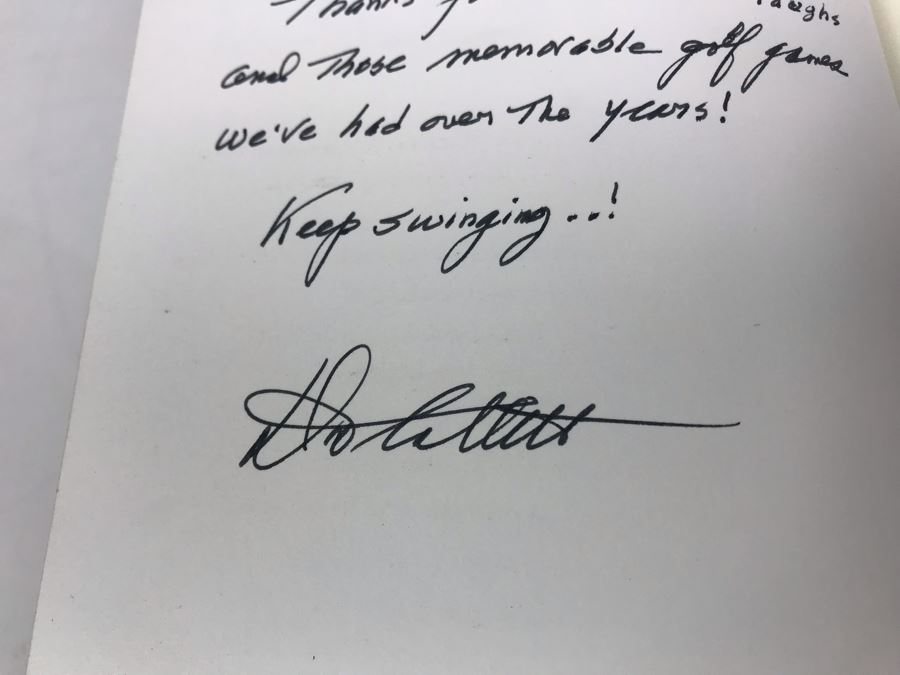 Thanks
laughs
and those memorable golf games
we've had over the years!
Keep swinging...!